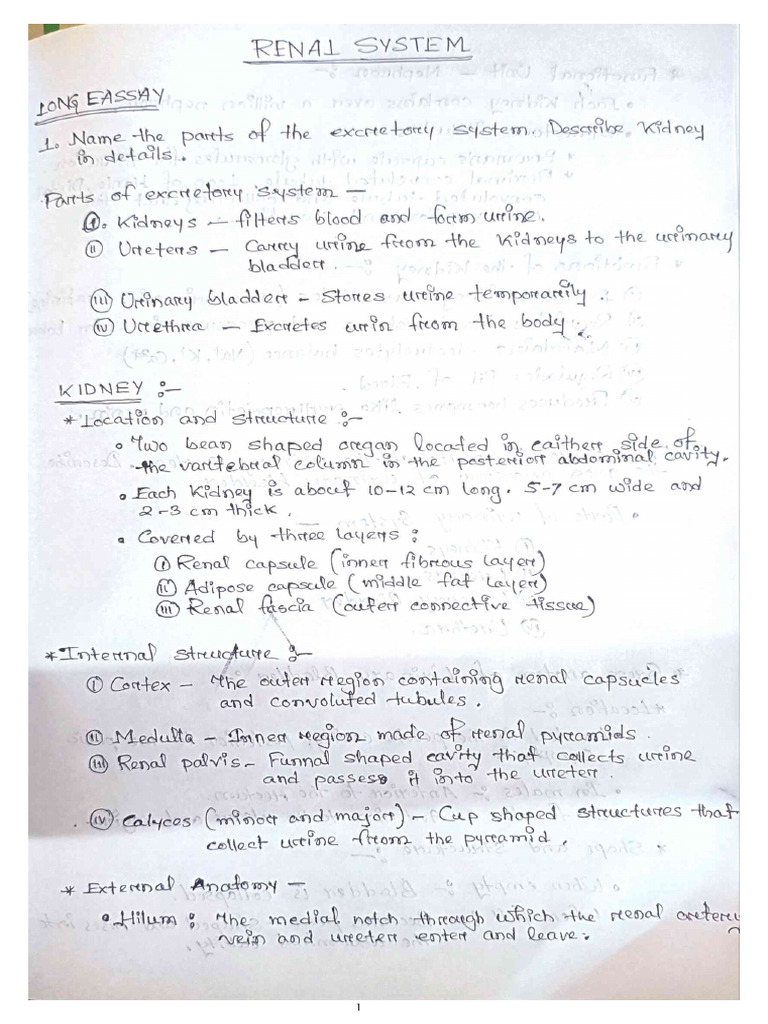 RENAL SYSTEM
LONG EASSAY
1. Name the parts of the excretory system. Describe Kidney
in details.
Parts of excretory system —
(I). Kidneys — filters blood and form urine.
(II) Ureters — Carry urine from the kidneys to the urinary
bladder.
(III) Urinary bladder — Stores urine temporarily.
(IV) Urethra — Excretes urin from the body.
KIDNEY :—
* Location and structure :—
• Two bean shaped oregan located in caither side of
the vartebral column in the posterior abdominal cavity.
• Each Kidney is about 10-12 cm long. 5-7 cm wide and
2-3 cm thick.
• Covered by three layers :
(I) Renal capsule (inner fibrous layer)
(II) Adipose capsule (middle fat layer)
(III) Renal fascia (outer connective tissue)
* Internal structure :—
(I) Cortex — The outer region containing renal capsicles
and convoluted tubules.
(II) Medulta — Inner region made of renal pyramids.
(III) Renal palvis — Funnal shaped cavity that collects urine
and passess it into the ureter.
(IV) Calyces (minor and major) — Cup shaped structures that
collect urine from the pyramid.
* External Anatomy —
• Hilum : The medial notch through which the renal artery
vein and ureter enter and leave.
1